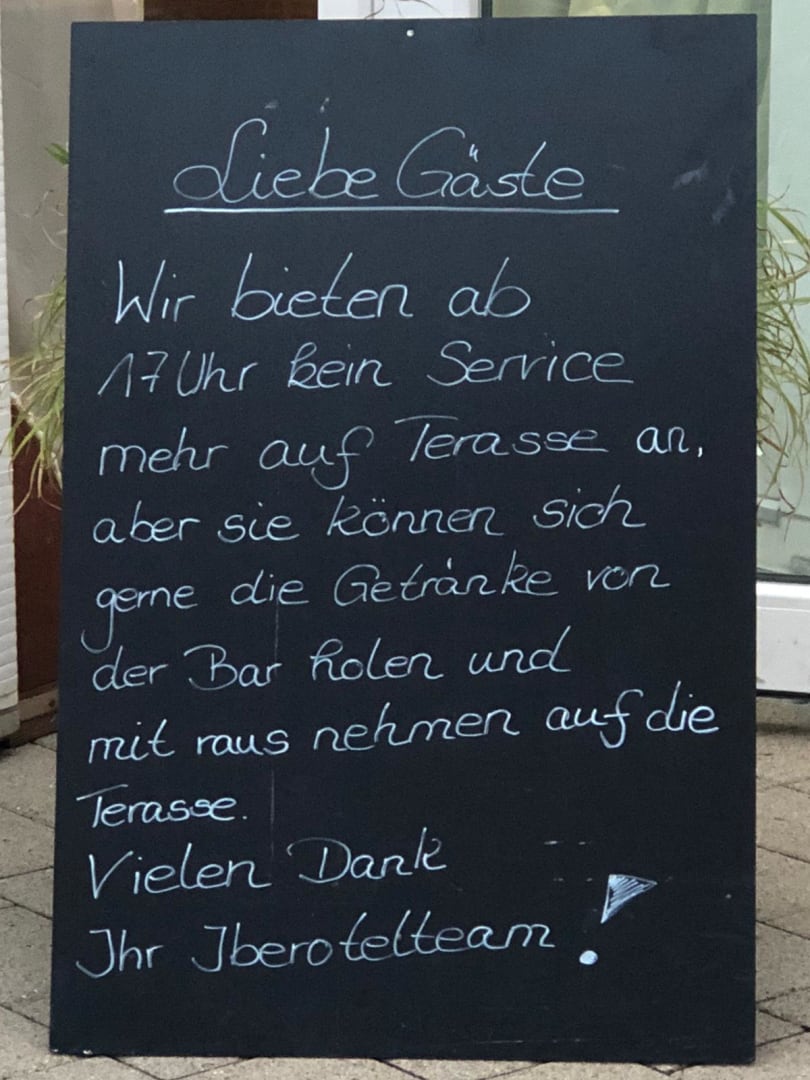 Liebe Gäste
Wir bieten ab
17 Uhr kein Service
mehr auf Terasse an,
aber sie können sich
gerne die Getränke von
der Bar holen und
mit raus nehmen auf die
Terasse.
Vielen Dank
Ihr Iberotelteam !